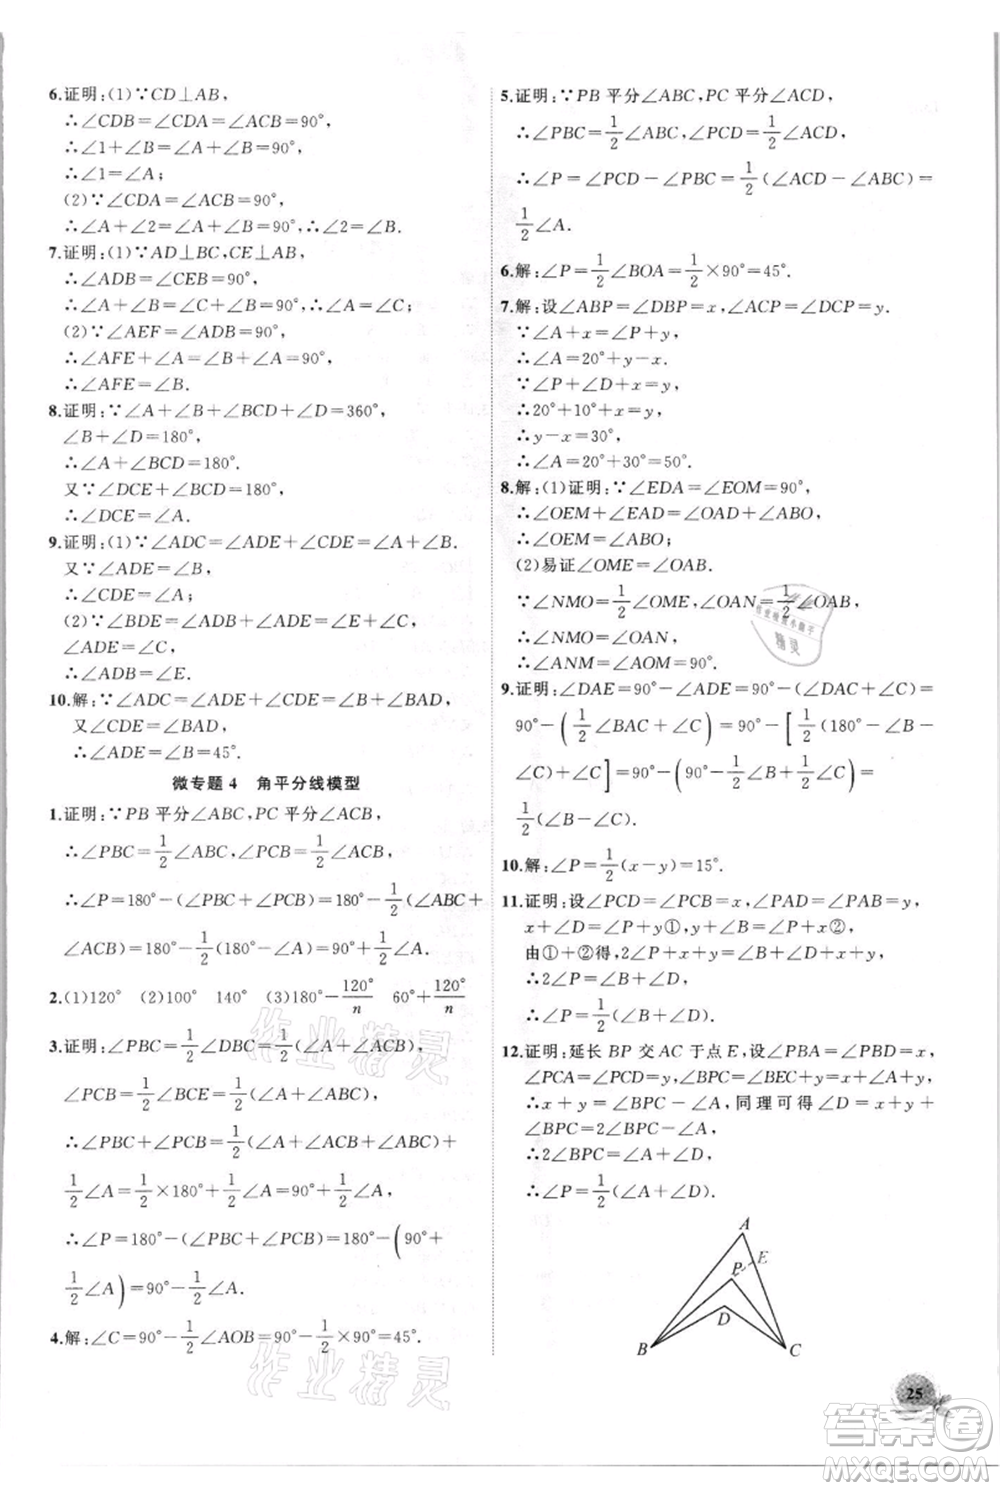 6.证明:(1)∵CD⊥AB,
∴∠CDB=∠CDA=∠ACB=90°,
∴∠1+∠B=∠A+∠B=90°,
∴∠1=∠A;
(2)∵∠CDA=∠ACB=90°,
∴∠A+∠2=∠A+∠B=90°,∴∠2=∠B.
7.证明:(1)∵AD⊥BC,CE⊥AB,
∴∠ADB=∠CEB=90°,
∴∠A+∠B=∠C+∠B=90°,∴∠A=∠C;
(2)∵∠AEF=∠ADB=90°,
∴∠AFE+∠A=∠B+∠A=90°,
∴∠AFE=∠B.
8.证明:∵∠A+∠B+∠BCD+∠D=360°,
∠B+∠D=180°,
∴∠A+∠BCD=180°.
又∵∠DCE+∠BCD=180°,
∴∠DCE=∠A.
9.证明:(1)∵∠ADC=∠ADE+∠CDE=∠A+∠B.
又∵∠CDE=∠B,
∴∠ADE=∠A;
(2)∵∠BDE=∠ADB+∠ADE=∠C+∠E,
∠ADE=∠C,
∴∠ADB=∠E.
10.解:∵∠ADC=∠ADE+∠CDE=∠B+∠BAD,
又∠CDE=∠BAD,
∴∠ADE=∠B=45°.
微专题 4 角平分线模型
1.证明:∵PB 平分∠ABC,PC 平分∠ACB,
∴∠PBC=1/2∠ABC,∠PCB=1/2∠ACB,
∴∠P=180°-(∠PBC+∠PCB)=180°-1/2(∠ABC+
∠ACB)=180°-1/2(180°-∠A)=90°+1/2∠A.
2.(1)120° (2)100° 140° (3)180°-120°/n 60°+120°/n
3.证明:∠PBC=1/2∠DBC=1/2(∠A+∠ACB),
∠PCB=1/2∠BCE=1/2(∠A+∠ABC),
∴∠PBC+∠PCB=1/2(∠A+∠ABC+∠ACB)+
1/2∠A=1/2×180°+1/2∠A=90°+1/2∠A,
∴∠P=180°-(∠PBC+∠PCB)=180°-(90°+
1/2∠A)=90°-1/2∠A.
4.解:∠C=90°-1/2∠AOB=90°-1/2×90°=45°.
5.证明:∵PB 平分∠ABC,PC 平分∠ACD,
∴∠PBC=1/2∠ABC,∠PCD=1/2∠ACD,
∴∠P=∠PCD-∠PBC=1/2(∠ACD-∠ABC)=
1/2∠A.
6.解:∠P=1/2∠BOA=1/2×90°=45°.
7.解:设∠ABP=∠DBP=x,∠ACP=∠DCP=y.
∵∠A+x=∠P+y,
∴∠A=20°+y-x.
∵∠P+∠DBP=∠D+x,
∴20°+10°+x=y,
∴y-x=30°,
∴∠A=20°+30°=50°.
8.解:(1)证明:∵∠EDA=∠EOM=90°,
∴∠OEM+∠EAD=∠OAD+∠ABO,
∴∠OEM=∠ABO;
(2)易证∠OME=∠OAB.
∵∠NMO=1/2∠OME,∠OAN=1/2∠OAB,
∴∠NMO=∠OAN,
∴∠ANM=∠AOM=90°.
9.证明:∠DAE=90°-∠ADE=90°-(∠DAC+∠C)=
90°-(1/2∠BAC+∠C)=90°-[1/2(180°-∠B-
∠C)+∠C]=90°-(90°-1/2∠B+1/2∠C)=
1/2(∠B-∠C).
10.解:∠P=1/2(x-y)=15°.
11.证明:设∠PCD=∠PCB=x,∠PAD=∠PAB=y,
x+∠D=∠P+y①,y+∠B=∠P+x②.
由①+②得,2∠P+x+y=∠B+∠D+x+y,
∴2∠P=∠B+∠D,
∴∠P=1/2(∠B+∠D).
12.证明:延长 BP 交 AC 于点 E,设∠PBA=∠PBD=x,
∠PCA=∠PCD=y,∠BPC=∠BEC+y=∠A+x+y,
∴x+y=∠BPC-∠A,同理可得∠D=x+y+
∠BPC=2∠BPC-∠A,
∴2∠BPC=∠A+∠D,
∴∠P=1/2(∠A+∠D).
A
E
P
D
B
C
25
作业精灵
作业精灵
精灵
答案圈
MXQE.COM